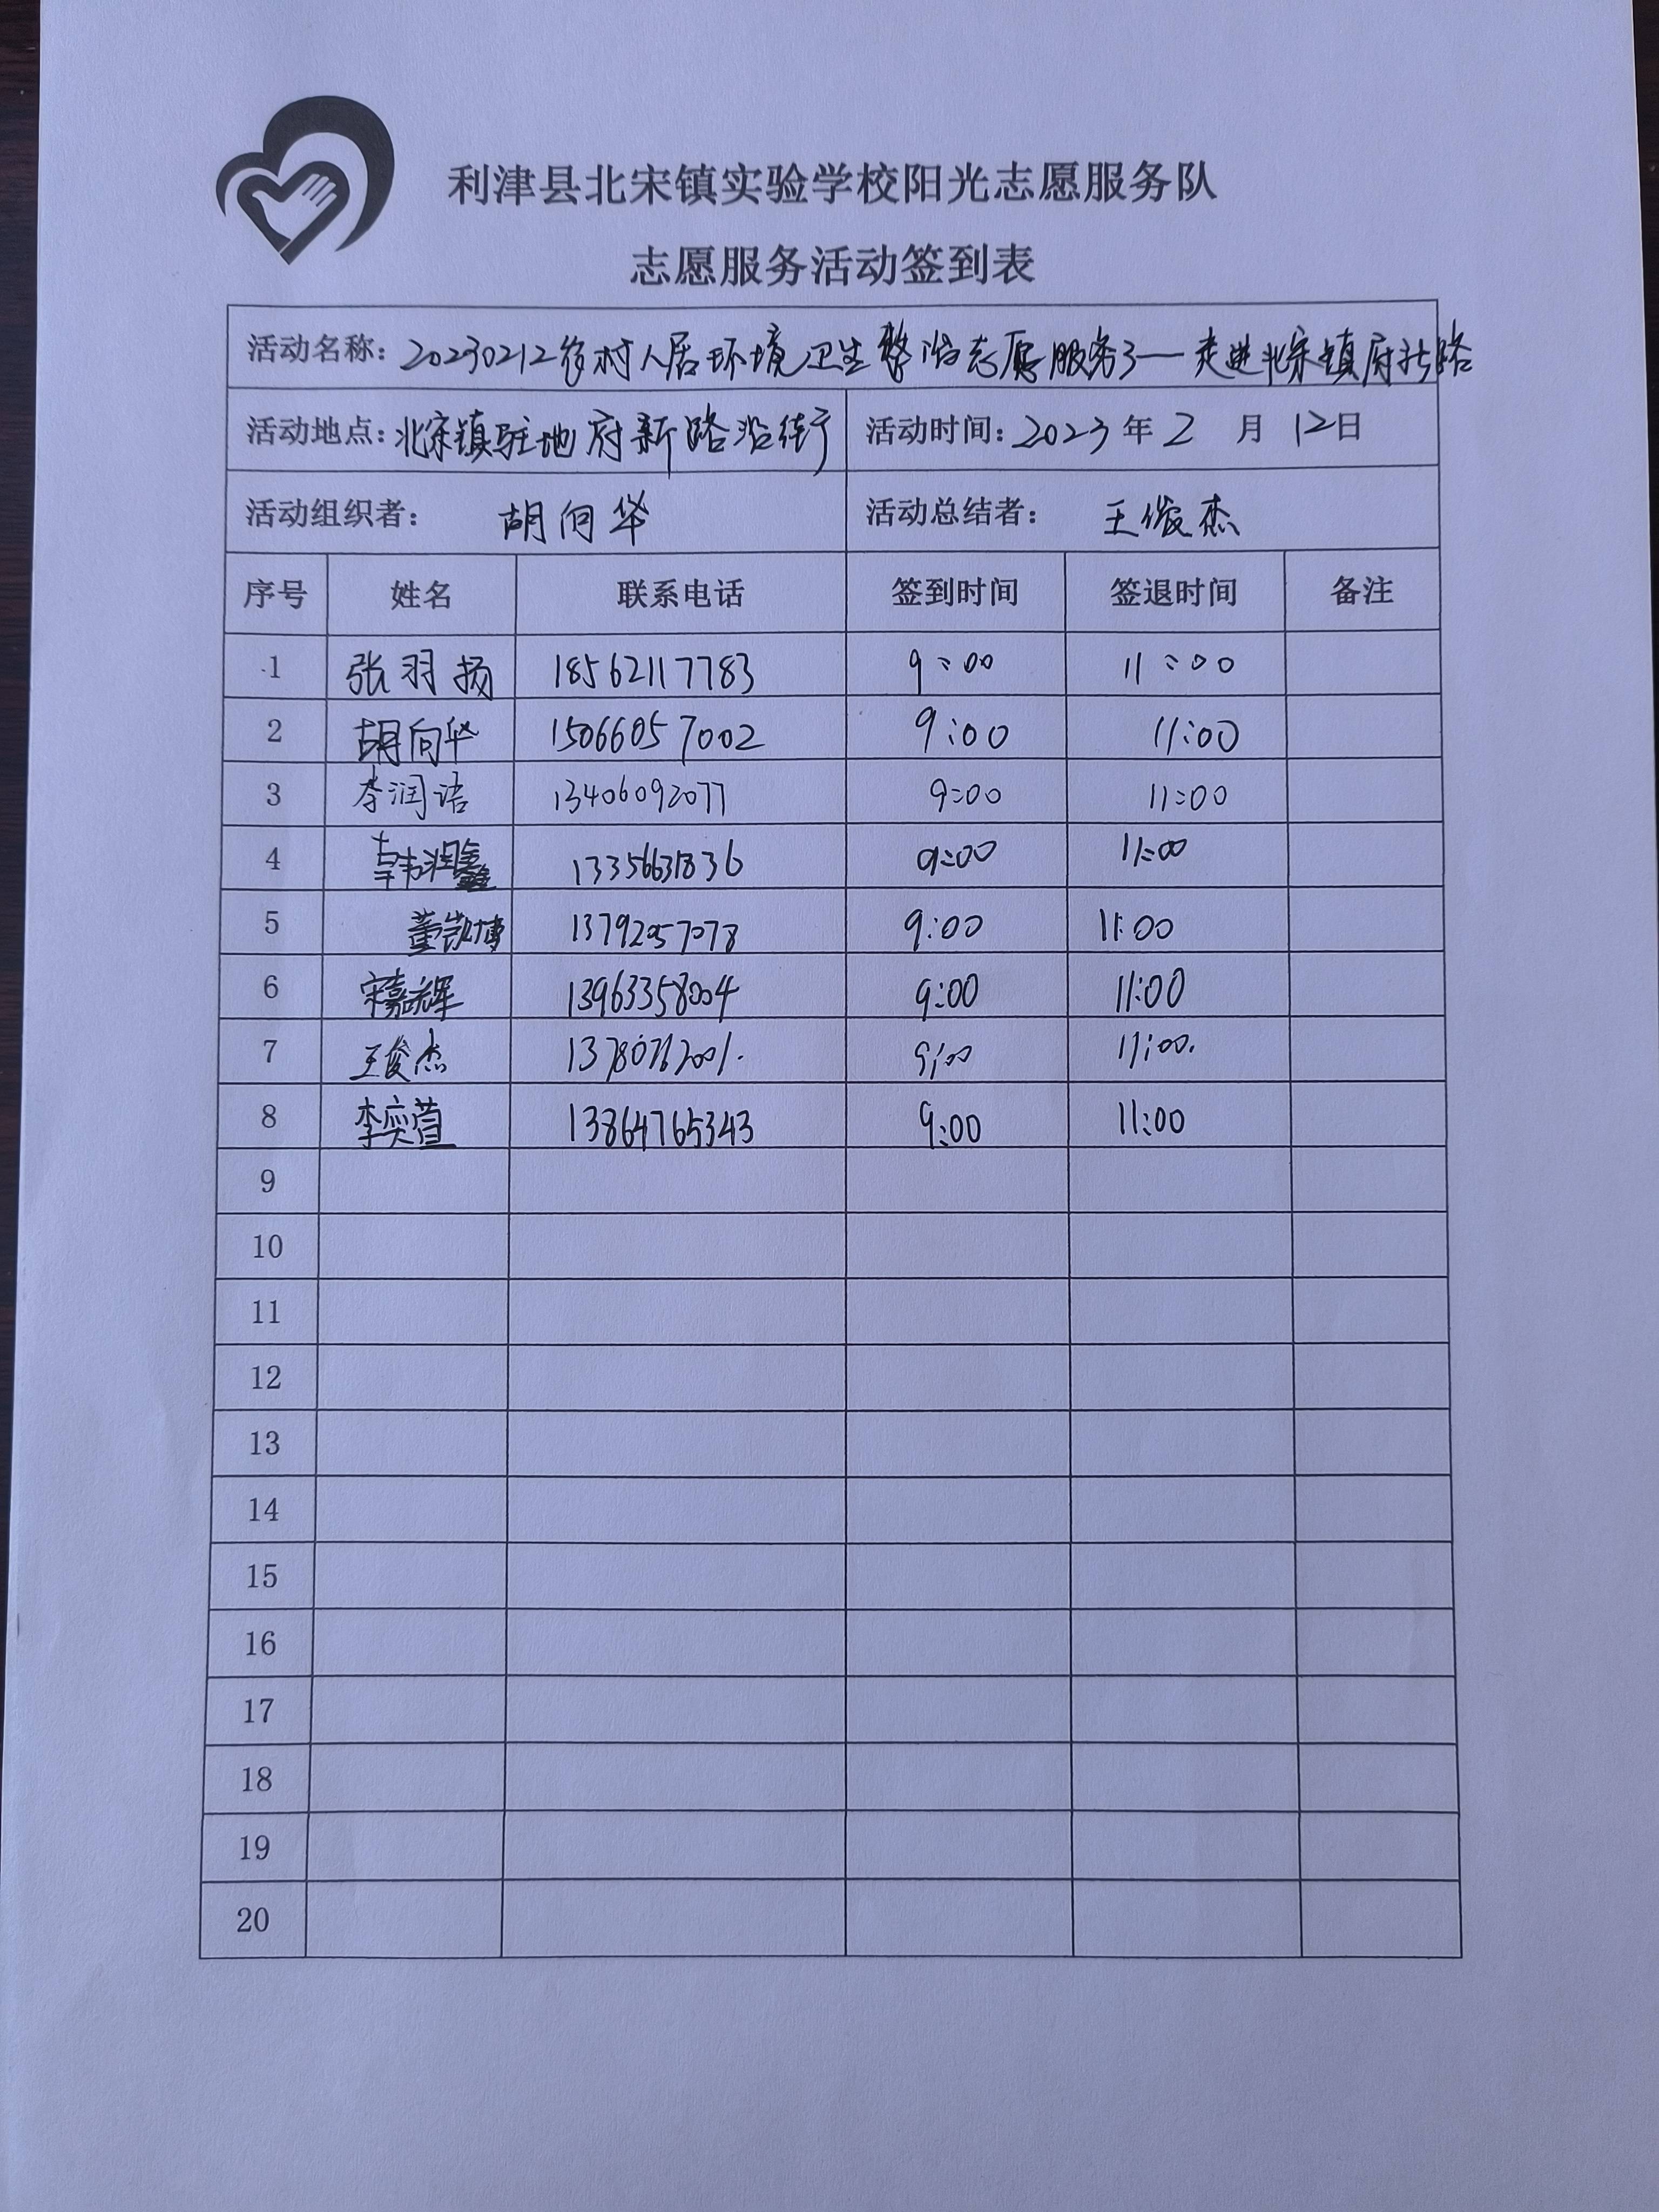 利津县北宋镇实验学校阳光志愿服务队
志愿服务活动签到表
活动名称：20230212农村人居环境卫生整治志愿服务3—走进北宋镇府新路
活动地点：北宋镇驻地府新路沿街 活动时间：2023年2月12日
活动组织者：胡向华 活动总结者：王俊杰
序号 姓名 联系电话 签到时间 签退时间 备注
1 张羽扬 18562117783 9:00 11:00
2 胡向华 15066057002 9:00 11:00
3 李润语 13406092077 9:00 11:00
4 韩润鑫 13356631836 9:00 11:00
5 董凯博 13792057078 9:00 11:00
6 宋嘉辉 13963358004 9:00 11:00
7 王俊杰 9:00 11:00.
8 李奕萱 13864765343 9:00 11:00
9
10
11
12
13
14
15
16
17
18
19
20